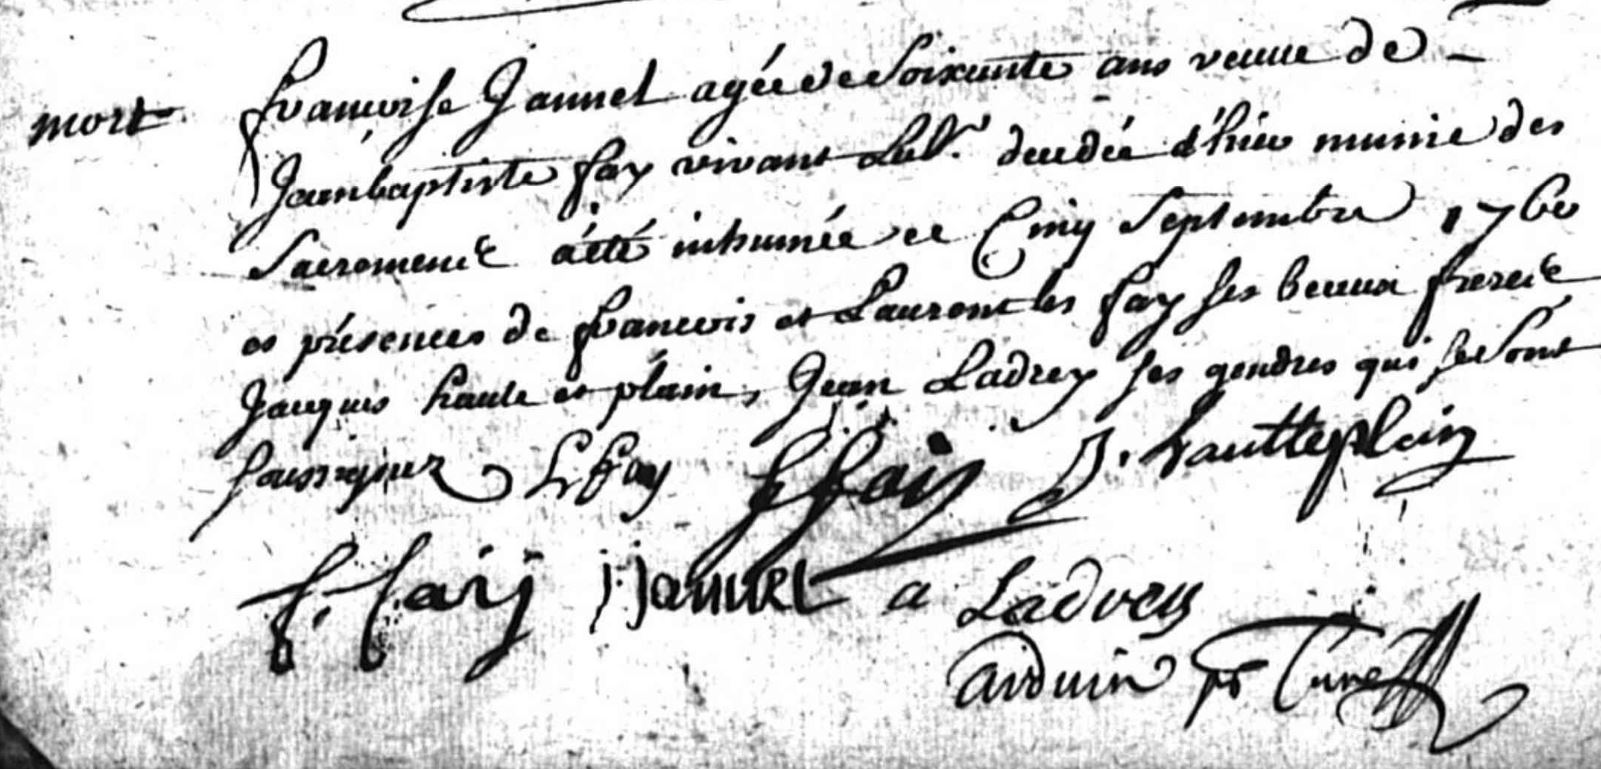 mort
francoise Jannel agée de Soixante ans veuue de
Jeanbaptiste fay vivant Lab.r decedée d'hier munie des
Sacremens a été inhumée ce Cinq Septembre 1760
es présences de francois et Laurent les fay ses beaux freres
Jacques haute et plain, Jean Ladrey ses gendres qui se sont
soussignez L fay f fay J. hautteplain
f. fay j Jannel a Ladrey
arduin ptre Curé